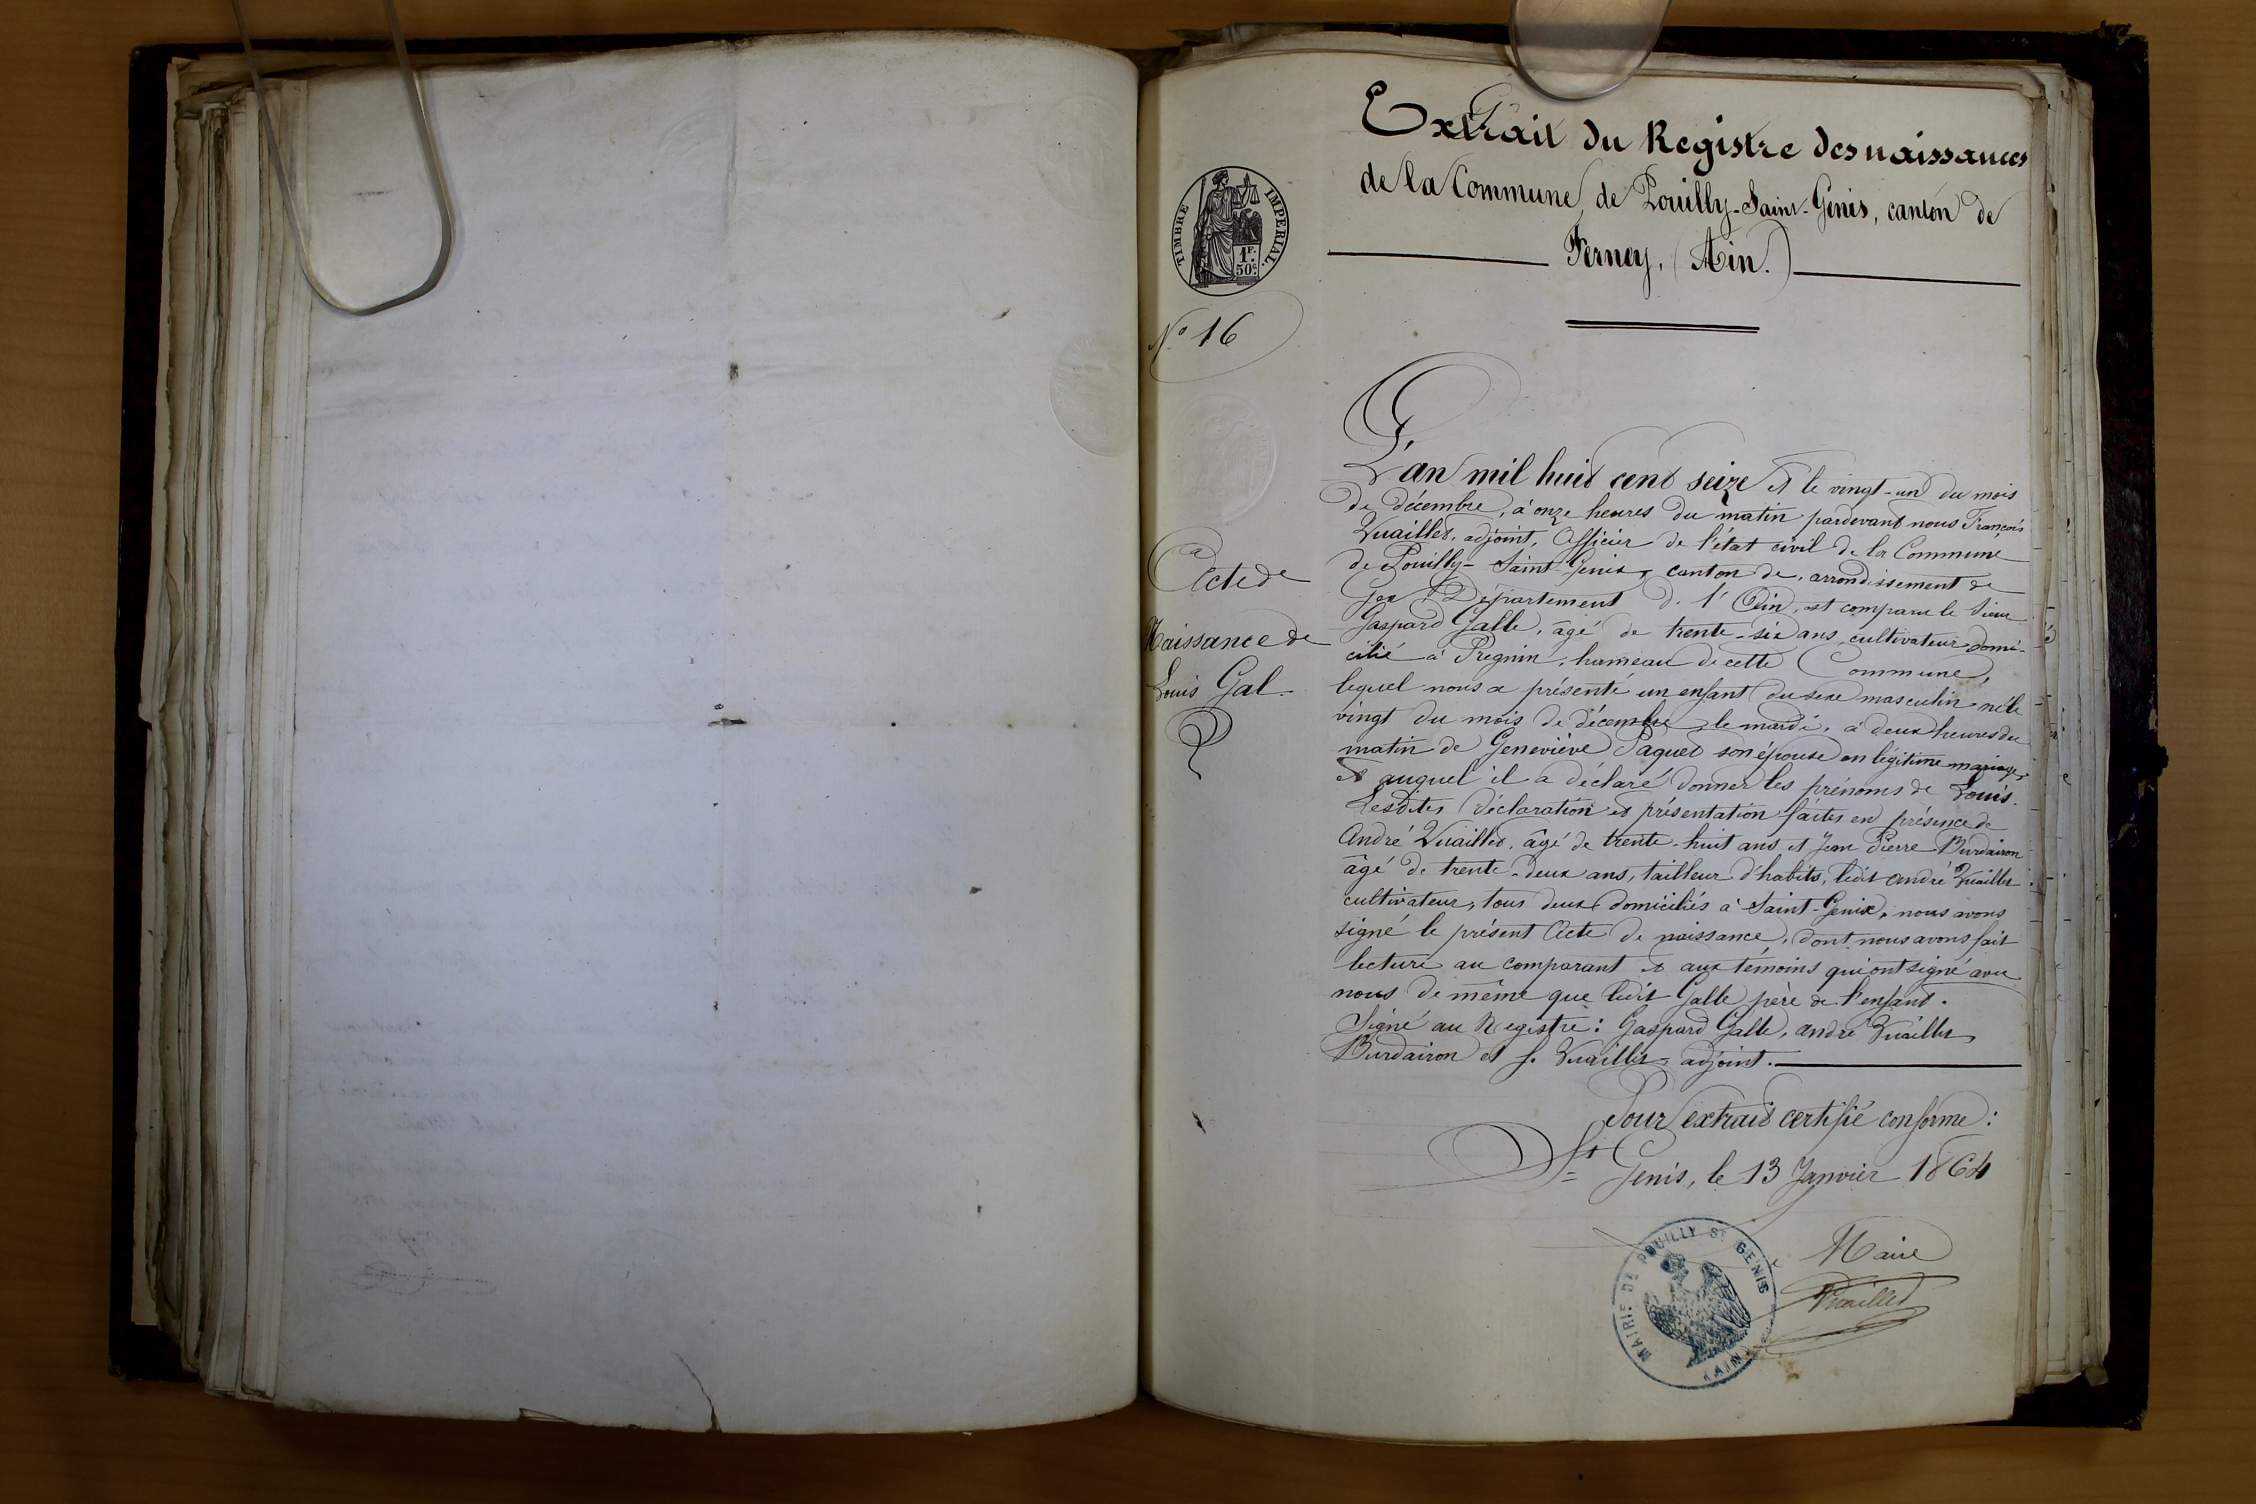 Extrait du Registre des naissances
de la Commune de Pouilly-Saint-Genis, canton de
Ferney, (Ain.)
TIMBRE IMPERIAL.
1F.
50c
No 16
L'an mil huit cent seize et le vingt-un du mois
de décembre, à onze heures du matin pardevant nous François
Vuaillet, adjoint, Officier de l'état civil de la Commune
de Pouilly-Saint-Genix, canton de, arrondissement de
Gex Département de l'Ain, est comparu le Sieur
Gaspard Galle, âgé de trente-six ans cultivateur domi-
cilié à Pregnin, hameau de cette Commune,
lequel nous a présenté un enfant du sexe masculin né le
vingt du mois de décembre, le mardi, à deux heures du
matin de Geneviève Paquet son épouse en légitime mariage,
et auquel il a déclaré donner les prénoms de Louis.
Lesdites déclaration et présentation faites en présence de
André Vuaillet, âgé de trente-huit ans et Jean Pierre Burdairon
âgé de trente-deux ans, tailleur d'habits, ledit andré Vuaillet
cultivateur, tous deux domiciliés à Saint-Genix, nous avons
signé le présent Acte de naissance, dont nous avons fait
lecture au comparant et aux témoins qui ont signé avec
nous de même que ledit Galle père de l'enfant.
Signé au Registre: Gaspard Galle, andré Vuaillet
Burdairon et f. Vuaillet, adjoint.
Acte de
Naissance de
Louis Gal.
Pour extrait certifié conforme:
St Genis, le 13 Janvier 1864
Maire
Vuaillet
MAIRIE DE POUILLY St GENIS
(AIN)